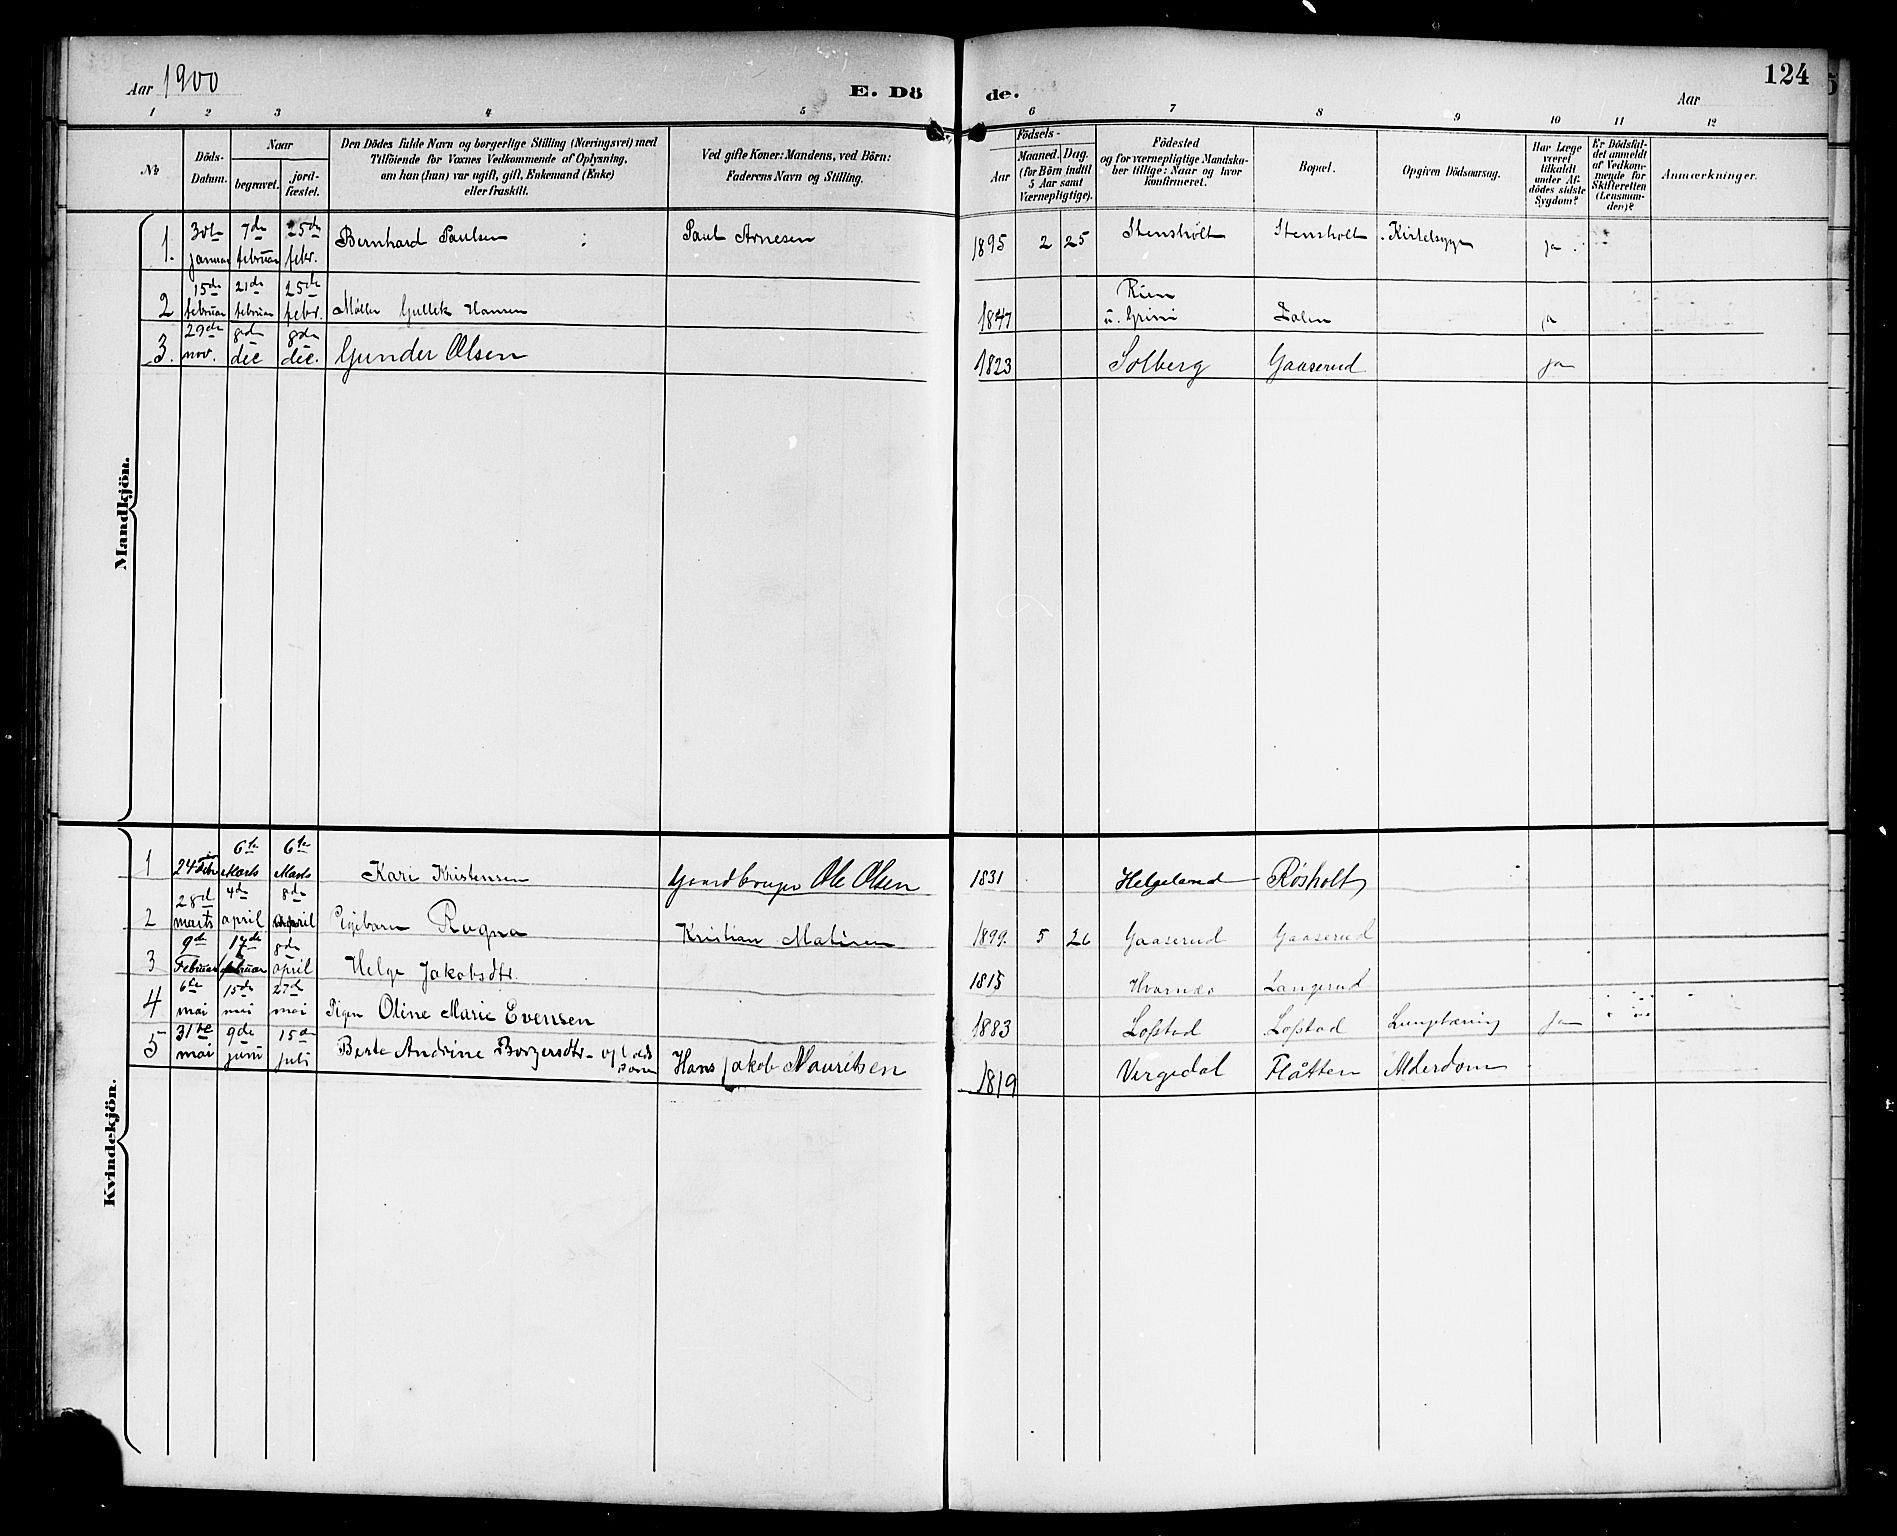 Aar 1900
E. Dö
de.
Aar
124
1 2 3 4 5 6 7 8 9 10 11 12
No
Döds-Datum.
Naar
begravet.
jord-fæstet.
Den Dödes fulde Navn og borgerlige Stilling (Næringsvei) med
Tilföiende for Voxnes Vedkommende af Oplysning,
om han (hun) var ugift, gift, Enkemand (Enke)
eller fraskilt.
Ved gifte Koner: Mandens, ved Börn:
Faderens Navn og Stilling.
Födsels-
Aar
Maaned. Dag.
(for Börn indtil
5 Aar samt
Værnepligtige).
Födested
og for værnepligtige Mandska-
ber tillige: Naar og hvor
konfirmeret.
Bopæl.
Opgiven Dödsaarsag.
Har Læge
været
tilkaldt
under Af-
dödes sidste
Sygdom?
Er Dödsfal-
det anmeldt
af Vedkom-
mende for
Skifteretten
(Lensman-
den)?
Anmærkninger.
Mandkjön.
1. 30te januar 7de februar 25de febr. Bernhard Paulsen Paul Arnesen 1895 2 25 Stensholt Stensholt Kirtelsyge ja
2 15de februar 21de februar 25de febr. Møller Gullek Hansen 1847 u. Grini ja
3. 29de nov. 8de dec 8de dec. Gunder Olsen 1823 Solberg Gaaserud ja
Kvindekjön.
1 24 Febr 6te Marts 6te Marts Kari Kristensen Gaardbruger Ole Olsen 1831 Helgeland Røsholt
2 28de marts 4de april 8de april Pigebarn Ragna Kristian 1899. 5 26 Gaaserud Gaaserud
3 9de Februar 17de februar 8de april Helge Jakobsdtr. 1815 Hvarnes Langerud
4 6te mai 15de mai 27de mai Pigen Oline Marie Evensen 1883 Lofstad Lofstad Lungetæring Ja
5 31te mai 9de juni 15de juli Berte Andrine Borgersdtr Hans Jakob Mauritsen 1819 Vegedal Flåtten Alderdom